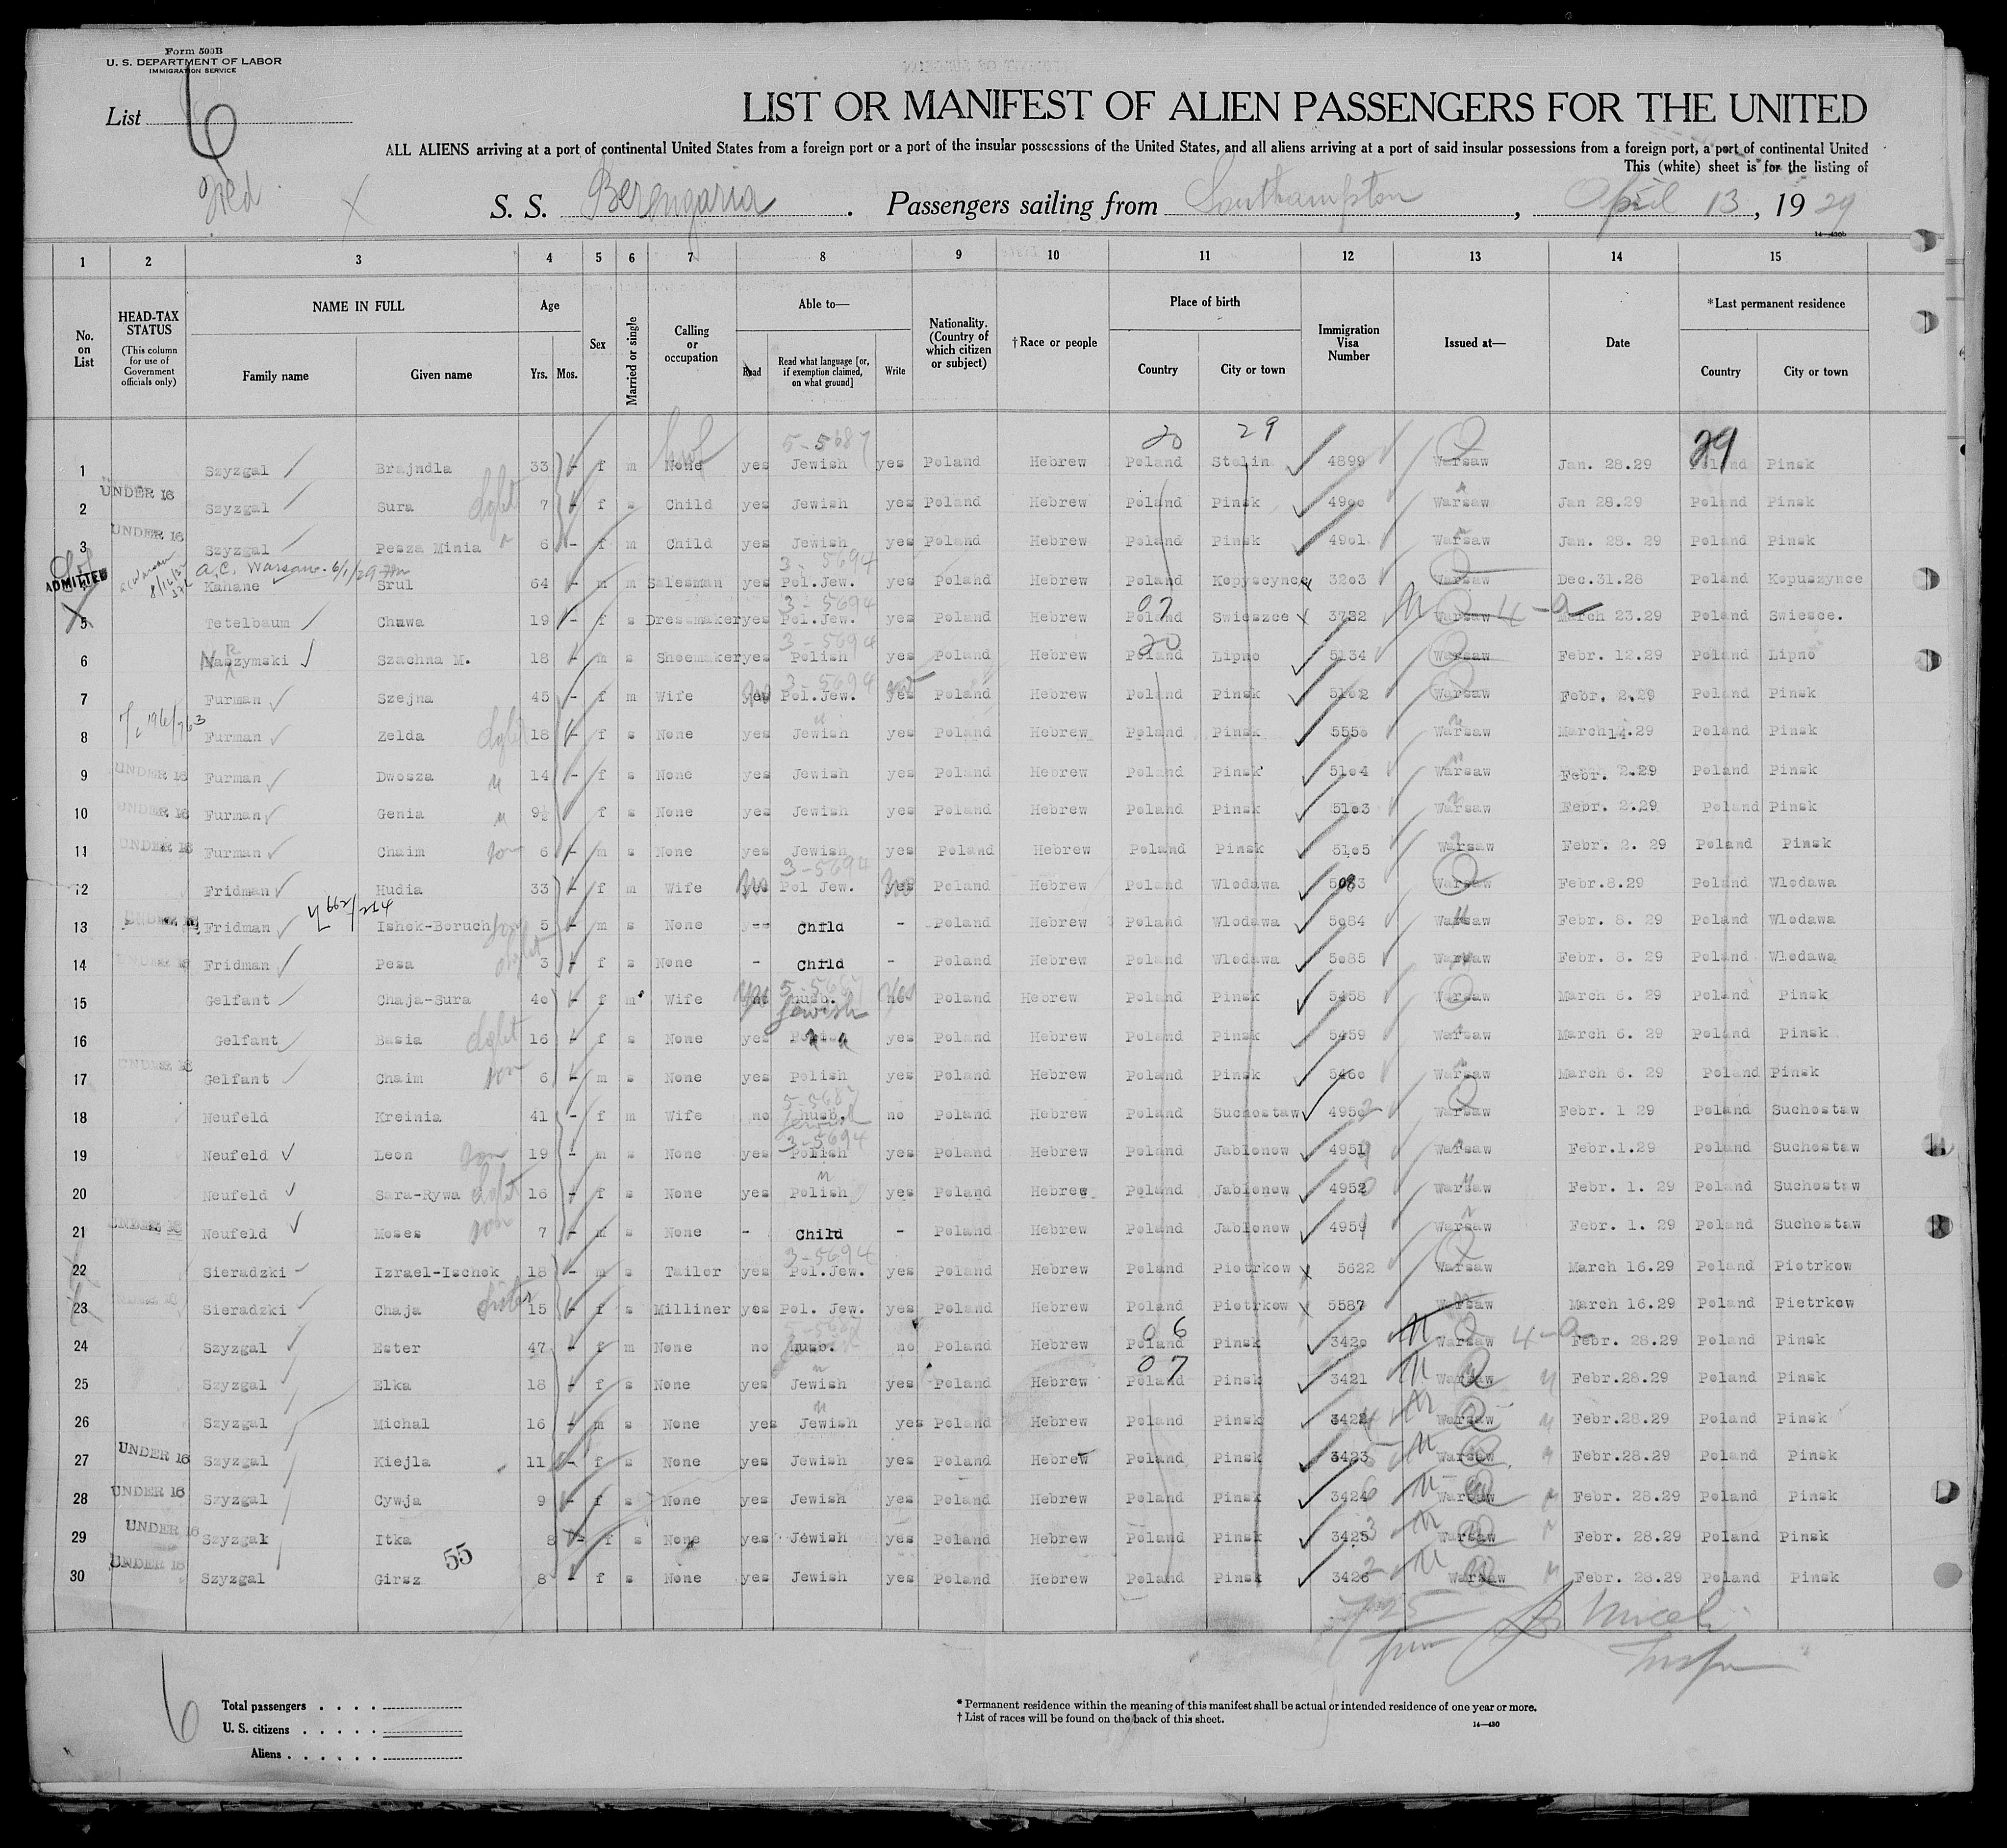 Form 500B
U. S. DEPARTMENT OF LABOR
IMMIGRATION SERVICE
List 6
LIST OR MANIFEST OF ALIEN PASSENGERS FOR THE UNITED
ALL ALIENS arriving at a port of continental United States from a foreign port or a port of the insular possessions of the United States, and all aliens arriving at a port of said insular possessions from a foreign port, a port of continental United
This (white) sheet is for the listing of
S. S. Berengaria. Passengers sailing from Southampton, April 13, 1929
14—430b
1 2 3 4 5 6 7 8 9 10 11 12 13 14 15
No. on List
HEAD-TAX STATUS (This column for use of Government officials only)
NAME IN FULL Family name Given name
Age Yrs. Mos.
Sex
Married or single
Calling or occupation
Able to— Read Read what language [or, if exemption claimed, on what ground] Write
Nationality. (Country of which citizen or subject)
†Race or people
Place of birth Country City or town
Immigration Visa Number
Issued at—
Date
*Last permanent residence Country City or town
5-5687 20 29 29
1 Szyzgal Brajndla 33 - f m None yes Jewish yes Poland Hebrew Poland Stolin 4899 Warsaw Jan. 28.29 Poland Pinsk
2 UNDER 16 Szyzgal Sura dght 7 - f s Child yes Jewish yes Poland Hebrew Poland Pinsk 4900 Warsaw Jan 28.29 Poland Pinsk
3 UNDER 16 Szyzgal Pesza Minia 6 - f m Child yes Jewish yes Poland Hebrew Poland Pinsk 4901 Warsaw Jan. 28. 29 Poland Pinsk
A.C. Warsaw. 6/1/29 3-5694
ADMITTED Kahane Srul 64 - m m Salesman yes Pol.Jew. yes Poland Hebrew Poland Kopyscynce 3203 Warsaw Dec.31.28 Poland Kopuszynce
3-5694 07
5 Tetelbaum Chawa 19 - f s Dressmaker yes Pol.Jew. yes Poland Hebrew Poland Swieszce 3732 Warsaw 4-a March 23.29 Poland Swiesce.
3-5694 20
6 Naszymski Szachna M. 18 - m s Shoemaker yes Polish yes Poland Hebrew Poland Lipno 5134 Warsaw Febr. 12.29 Poland Lipno
3-5694
7 Furman Szejna 45 - f m Wife yes no Pol.Jew. yes no Poland Hebrew Poland Pinsk 5102 Warsaw Febr. 2.29 Poland Pinsk
8 Furman Zelda dght 18 - f s None yes Jewish yes Poland Hebrew Poland Pinsk 5550 Warsaw March 14.29 Poland Pinsk
9 UNDER 16 Furman Dwosza 14 - f s None yes Jewish yes Poland Hebrew Poland Pinsk 5104 Warsaw Febr. 2.29 Poland Pinsk
10 UNDER 16 Furman Genia 9½ f s None yes Jewish yes Poland Hebrew Poland Pinsk 5103 Warsaw Febr. 2.29 Poland Pinsk
11 UNDER 16 Furman Chaim son 6 - m s None yes Jewish yes Poland Hebrew Poland Pinsk 5105 Warsaw Febr. 2. 29 Poland Pinsk
3-5694
12 Fridman Hudia 33 - f m Wife yes no Pol Jew. yes no Poland Hebrew Poland Wlodawa 5083 Warsaw Febr.8.29 Poland Wlodawa
13 UNDER 16 Fridman Ishok-Boruch son 5 - m s None -- Child - Poland Hebrew Poland Wlodawa 5084 Warsaw Febr. 8. 29 Poland Wlodawa
14 UNDER 16 Fridman Pesa dght 3 - f s None - Child - Poland Hebrew Poland Wlodawa 5085 Warsaw Febr. 8. 29 Poland Wlodawa
5-5687
15 Gelfant Chaja-Sura 40 - f m Wife no yes husb. Jewish no yes Poland Hebrew Poland Pinsk 5458 Warsaw March 6. 29 Poland Pinsk
16 Gelfant Basia dght 16 - f s None yes Polish yes Poland Hebrew Poland Pinsk 5459 Warsaw March 6. 29 Poland Pinsk
17 UNDER 16 Gelfant Chaim son 6 - m s None yes Polish yes Poland Hebrew Poland Pinsk 5460 Warsaw March 6. 29 Poland Pinsk
5-5687
18 Neufeld Kreinia 41 - f m Wife no husb. Jewish no Poland Hebrew Poland Suchostaw 4950 Warsaw Febr. 1 29 Poland Suchostaw
3-5694
19 Neufeld Leon son 19 - m s None yes Polish yes Poland Hebrew Poland Jablonow 4951 Warsaw Febr.1.29 Poland Suchostaw
20 Neufeld Sara-Rywa dght 16 - f s None yes Polish yes Poland Hebrew Poland Jablonow 4952 Warsaw Febr. 1. 29 Poland Suchostaw
21 UNDER 16 Neufeld Moses son 7 - m s None - Child - Poland Hebrew Poland Jablonow 4959 Warsaw Febr. 1. 29 Poland Suchostaw
3-5694
22 Sieradzki Izrael-Ischok 18 - m s Tailor yes Pol.Jew. yes Poland Hebrew Poland Piotrkow 5622 Warsaw March 16.29 Poland Piotrkow
23 UNDER 16 Sieradzki Chaja Sister 15 - f s Milliner yes Pol. Jew. yes Poland Hebrew Poland Piotrkow 5587 Warsaw March 16.29 Poland Pietrkow
06
24 Szyzgal Ester 47 - f m None no husb. no Poland Hebrew Poland Pinsk 3420 Warsaw 4-a Febr. 28.29 Poland Pinsk
07
25 Szyzgal Elka 18 - f s None yes Jewish yes Poland Hebrew Poland Pinsk 3421 Warsaw Febr.28.29 Poland Pinsk
26 Szyzgal Michal 16 - m s None yes Jewish yes Poland Hebrew Poland Pinsk 3422 Warsaw Febr.28.29 Poland Pinsk
27 UNDER 16 Szyzgal Kiejla 11 - f s None yes Jewish yes Poland Hebrew Poland Pinsk 3423 Warsaw Febr.28.29 Poland Pinsk
28 UNDER 16 Szyzgal Cywja 9 - f s None yes Jewish yes Poland Hebrew Poland Pinsk 3424 Warsaw Febr. 28.29 Poland Pinsk
29 UNDER 16 Szyzgal Itka 8 - f s None yes Jewish yes Poland Hebrew Poland Pinsk 3425 Warsaw Febr. 28.29 Poland Pinsk
30 UNDER 16 Szyzgal Girsz 55 8 - f s None yes Jewish yes Poland Hebrew Poland Pinsk 3426 Warsaw Febr. 28.29 Poland Pinsk
6
Total passengers . . . .
U. S. citizens . . . . .
Aliens . . . . . .
* Permanent residence within the meaning of this manifest shall be actual or intended residence of one year or more.
† List of races will be found on the back of this sheet.
14—430